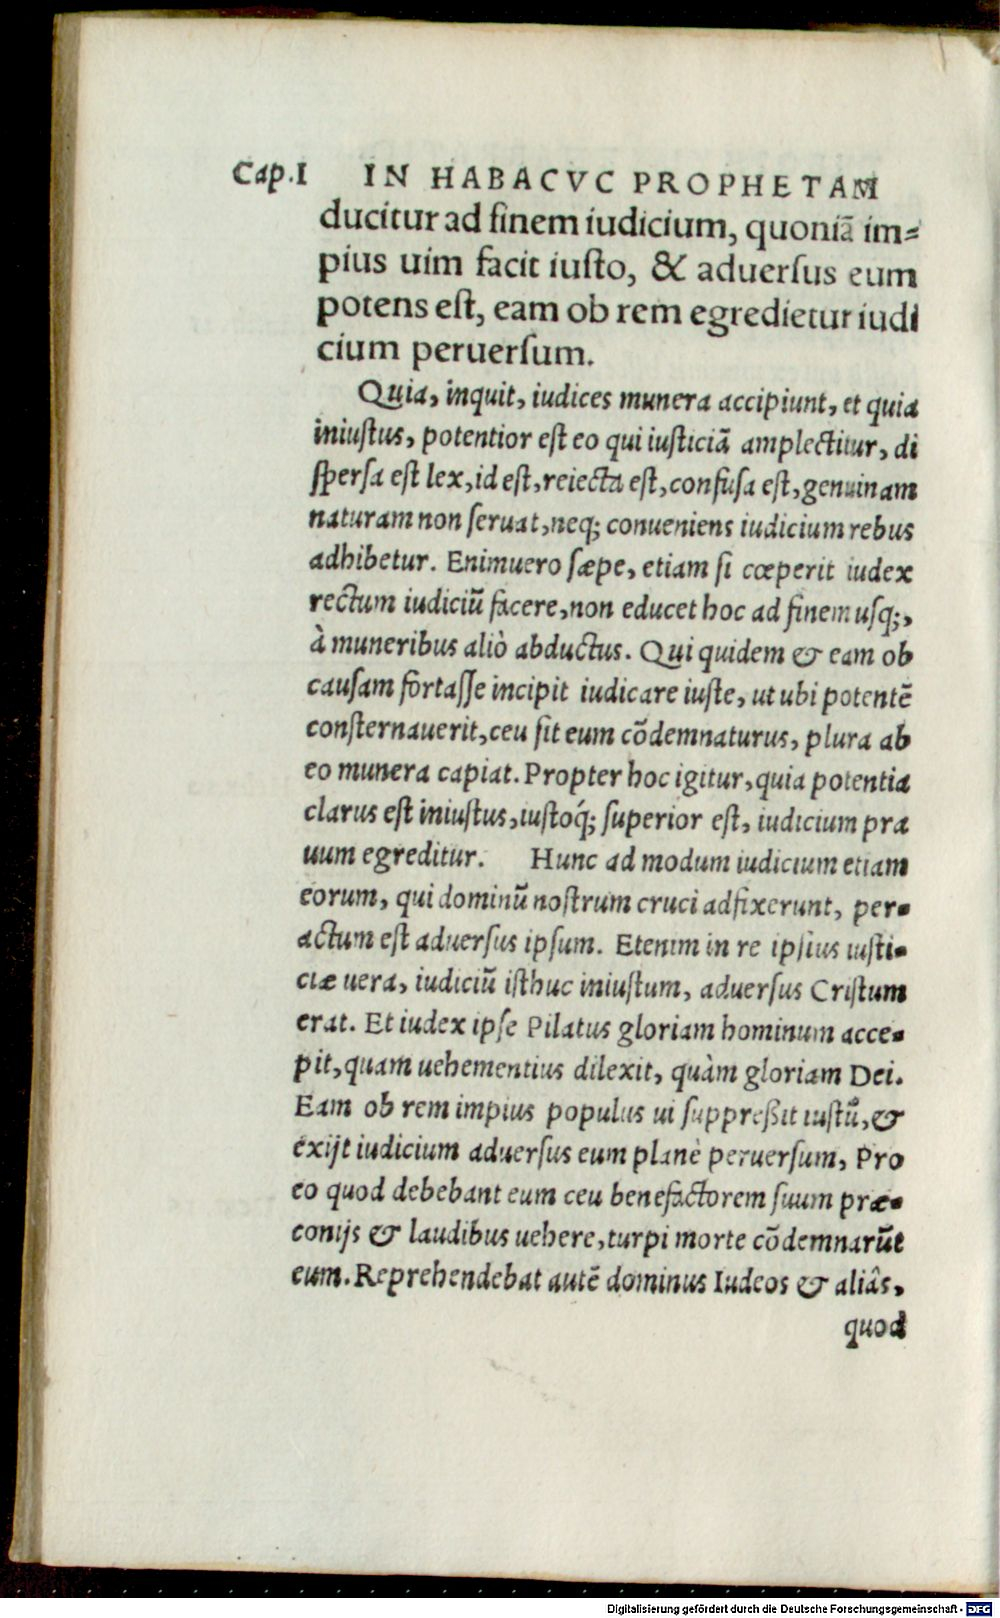 Cap.I IN HABACVC PROPHETAM
ducitur ad finem iudicium, quoniā im⸗
pius uim facit iusto, & aduersus eum
potens est, eam ob rem egredietur iudi
cium peruersum.
Quia, inquit, iudices munera accipiunt, et quia
iniustus, potentior est eo qui iusticiā amplectitur, di
spersa est lex, id est, reiecta est, confusa est, genuinam
naturam non seruat, neq; conueniens iudicium rebus
adhibetur. Enimuero sæpe, etiam si cœperit iudex
rectum iudiciū facere, non educet hoc ad finem usq;,
à muneribus aliò abductus. Qui quidem & eam ob
causam fortasse incipit iudicare iuste, ut ubi potentē
consternauerit, ceu sit eum cōdemnaturus, plura ab
eo munera capiat. Propter hoc igitur, quia potentia
clarus est iniustus, iustoq́; superior est, iudicium pra
uum egreditur. Hunc ad modum iudicium etiam
eorum, qui dominū nostrum cruci adfixerunt, per⸗
actum est aduersus ipsum. Etenim in re ipsius iusti⸗
ciæ uera, iudiciū isthuc iniustum, aduersus Cristum
erat. Et iudex ipse Pilatus gloriam hominum acce⸗
pit, quam uehementius dilexit, quàm gloriam Dei.
Eam ob rem impius populus ui suppreßit iustū, &
exijt iudicium aduersus eum planè peruersum, Pro
eo quod debebant eum ceu benefactorem suum præ⸗
conijs & laudibus uehere, turpi morte cōdemnarūt
eum. Reprehendebat autē dominus Iudeos & aliâs,
quod
Digitalisierung gefördert durch die Deutsche Forschungsgemeinschaft - DFG